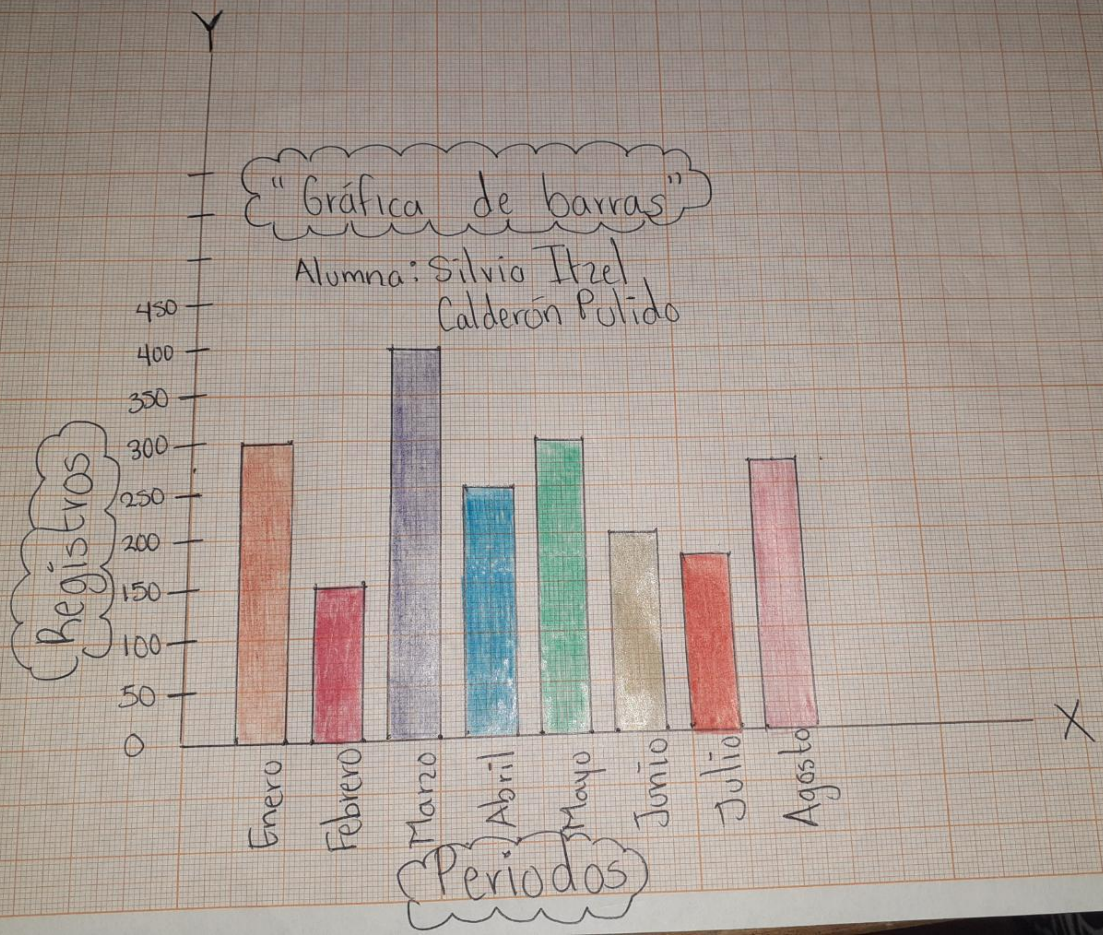 Y
"Gráfica de barras"
Alumna: Silvia Itzel
Calderón Pulido
450
400
350
300
250
200
150
100
50
0
Registros
X
Enero
Febrero
Marzo
Abril
Mayo
Junio
Julio
Agosto
Periodos